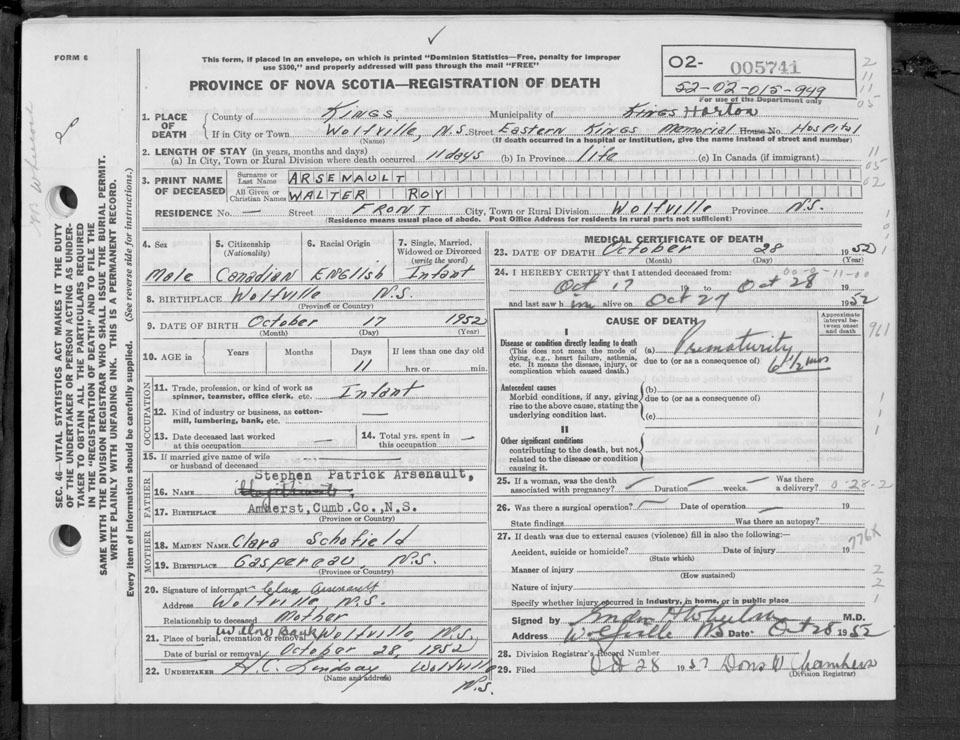 FORM 6
This form, if placed in an envelope, on which is printed "Dominion Statistics—Free, penalty for improper
use $300," and properly addressed will pass through the mail "FREE"
PROVINCE OF NOVA SCOTIA—REGISTRATION OF DEATH
02- 005741
52-02-015-949
For use of the Department only
1. PLACE OF DEATH
County of Kings Municipality of Kings Horton
If in City or Town Wolfville, N.S. Street Eastern Kings Memorial House No. Hospital
(Name) (If death occurred in a hospital or institution, give the name instead of street and number)
2. LENGTH OF STAY (in years, months and days)
(a) In City, Town or Rural Division where death occurred 11 days (b) In Province life (c) In Canada (if immigrant)
3. PRINT NAME OF DECEASED
Surname or Last Name ARSENAULT
All Given or Christian Names WALTER ROY
RESIDENCE No. — Street FRONT City, Town or Rural Division Wolfville Province N.S.
(Residence means usual place of abode. Post Office Address for residents in rural parts not sufficient)
4. Sex Male
5. Citizenship (Nationality) Canadian
6. Racial Origin English
7. Single, Married, Widowed or Divorced (write the word) Infant
8. BIRTHPLACE Wolfville N.S.
(Province or Country)
9. DATE OF BIRTH October 17 1952
(Month) (Day) (Year)
10. AGE in Years Months Days 11 If less than one day old hrs. or min.
OCCUPATION
11. Trade, profession, or kind of work as spinner, teamster, office clerk, etc. Infant
12. Kind of industry or business, as cotton-mill, lumbering, bank, etc. —
13. Date deceased last worked at this occupation —
14. Total yrs. spent in this occupation —
15. If married give name of wife or husband of deceased
FATHER
Stephen Patrick Arsenault,
16. NAME
17. BIRTHPLACE Amherst, Cumb.Co., N.S.
(Province or Country)
MOTHER
18. MAIDEN NAME Clara Schofield
19. BIRTHPLACE Gaspereau, N.S.
(Province or Country)
20. Signature of informant Clara Arsenault
Address Wolfville, N.S.
Relationship to deceased Mother
21. Place of burial, cremation or removal Willow Bank Wolfville, N.S.
Date of burial or removal October 28, 1952
22. UNDERTAKER H.C. Lindsay Wolfville N.S.
(Name and address)
MEDICAL CERTIFICATE OF DEATH
23. DATE OF DEATH October 28 1952
(Month) (Day) (Year)
24. I HEREBY CERTIFY that I attended deceased from:
Oct 17 19 to Oct 28
and last saw h im alive on Oct 27 1952
CAUSE OF DEATH
Approximate interval between onset and death
I
Disease or condition directly leading to death
(This does not mean the mode of dying, e.g., heart failure, asthenia, etc. It means the disease, injury, or complication which caused death.)
(a) Prematurity
due to (or as a consequence of) 6 1/2 mos
Antecedent causes
Morbid conditions, if any, giving rise to the above cause, stating the underlying condition last.
(b)
due to (or as a consequence of)
(c)
II
Other significant conditions
contributing to the death, but not related to the disease or condition causing it.
25. If a woman, was the death associated with pregnancy? Duration weeks. Was there a delivery? 0-28-2
26. Was there a surgical operation? Date of operation — 19
State findings Was there an autopsy?
27. If death was due to external causes (violence) fill in also the following:—
Accident, suicide or homicide? Date of injury 19
(State which)
776X
Manner of injury
(How sustained)
Nature of injury
Specify whether injury occurred in industry, in home, or in public place
Signed by M.D.
Address Wolfville NS Date: Oct 28 1952
28. Division Registrar's Record Number
29. Filed Oct 28 1957 Doris W Chambers
(Division Registrar)
961
SEC. 46—VITAL STATISTICS ACT MAKES IT THE DUTY
OF THE UNDERTAKER OR PERSON ACTING AS UNDER-
TAKER TO OBTAIN ALL THE PARTICULARS REQUIRED
IN THE "REGISTRATION OF DEATH" AND TO FILE THE
SAME WITH THE DIVISION REGISTRAR WHO SHALL ISSUE THE BURIAL PERMIT.
WRITE PLAINLY WITH UNFADING INK. THIS IS A PERMANENT RECORD.
Every item of information should be carefully supplied. (See reverse side for instructions.)